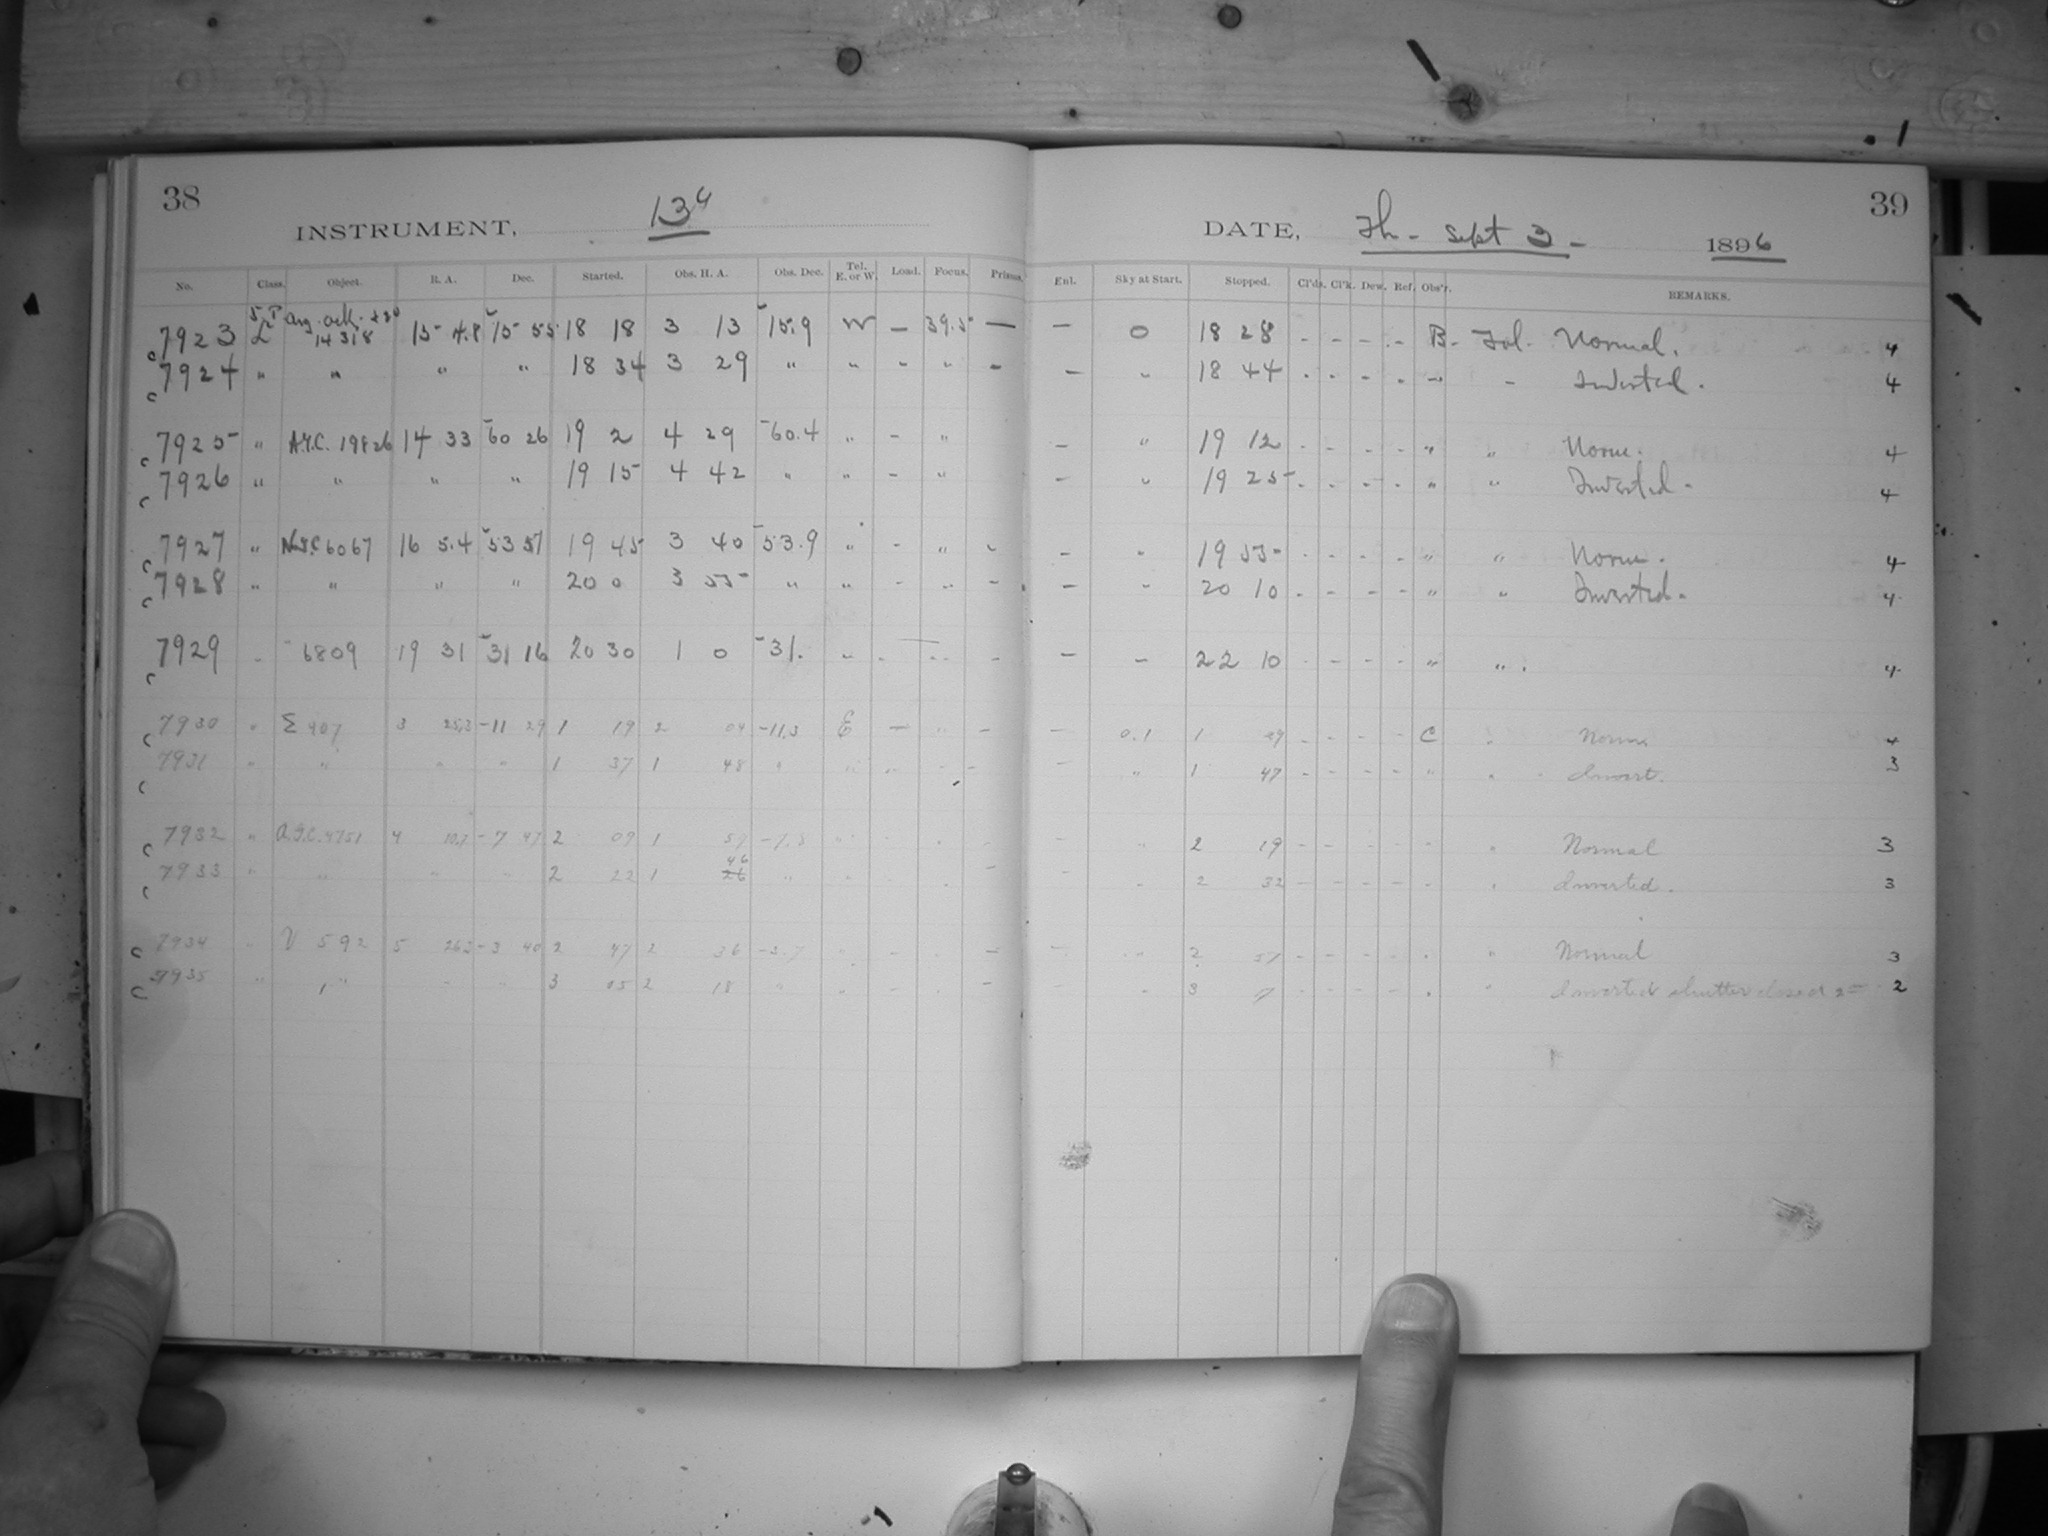 38
INSTRUMENT, 13"
No. Class. Object. R. A. Dec. Started. Obs. H. A. Obs. Dec. Tel. E. or W. Load. Focus. Prisms.
7923 L 14318 15 4.8 -15 55 18 18 3 13 -15.9 W — 39.5 —
c 7924 " " " " 18 34 3 29 " " - " -
c
7925 " A.G.C. 19826 14 33 -60 26 19 2 4 29 -60.4 " - "
c 7926 " " " " 19 15 4 42 " " - "
c
7927 " N.G.C 6067 16 5.4 -53 51 19 45 3 40 -53.9 " - " -
c 7928 " " " " 20 0 3 55 " " - " -
c
7929 " 6809 19 31 -31 16 20 30 1 0 -31. " - " -
c
7930 " Σ 407 3 25.2 -11 29 1 19 2 04 -11.3 E — " -
c 7931 " " " " 1 37 1 48 " " - " -
c
7932 " A.G.C. 4751 4 10.7 -7 47 2 09 1 57 -7.8 "
c 7933 " " " " 2 22 1 46 " "
c
7934 " V 592 5 26.2 -3 40 2 47 2 36 -3.7 " - -
c 7935 " " " " 3 05 2 18 " " - -
c
39
DATE, Th - Sept 3 - 1896
Enl. Sky at Start. Stopped. Cl'ds. Cl'k. Dew. Ref. Obs'r. REMARKS.
— 0 18 28 - - - - B- Fol. Normal. 4
— " 18 44 - - - - " " Inverted. 4
— " 19 12 - - - - " " Norm. 4
— " 19 25 - - - - " " Inverted. 4
— " 19 55 - - - - " " Norm. 4
— " 20 10 - - - - " " Inverted. 4
— " 22 10 - - - - " " 4
— 0.1 1 29 - - - - C " Norm 4
— " 1 47 - - - - " " Invert. 3
- " 2 19 - - - - - " Normal 3
- " 2 32 - - - - - " Inverted. 3
— " 2 57 - - - - " " Normal 3
— " 3 7 - - - - " " Inverted shutter closed 2